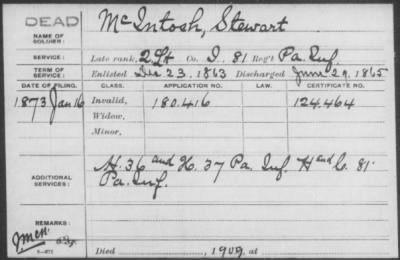 DEAD
McIntosh, Stewart
NAME OF SOLDIER:
SERVICE: Late rank, 2 Lt Co. I. 81 Reg't Pa. Inf.
TERM OF SERVICE: Enlisted Dec 23, 1863 Discharged June 29, 1865
DATE OF FILING. CLASS. APPLICATION NO. LAW. CERTIFICATE NO.
1873 Jan 16 Invalid, 180.416 124.464
Widow,
Minor,
ADDITIONAL SERVICES: H. 36 and H. 37 Pa. Inf. H and G. 81.
Pa. Inf.
REMARKS:
Died , 1909, at